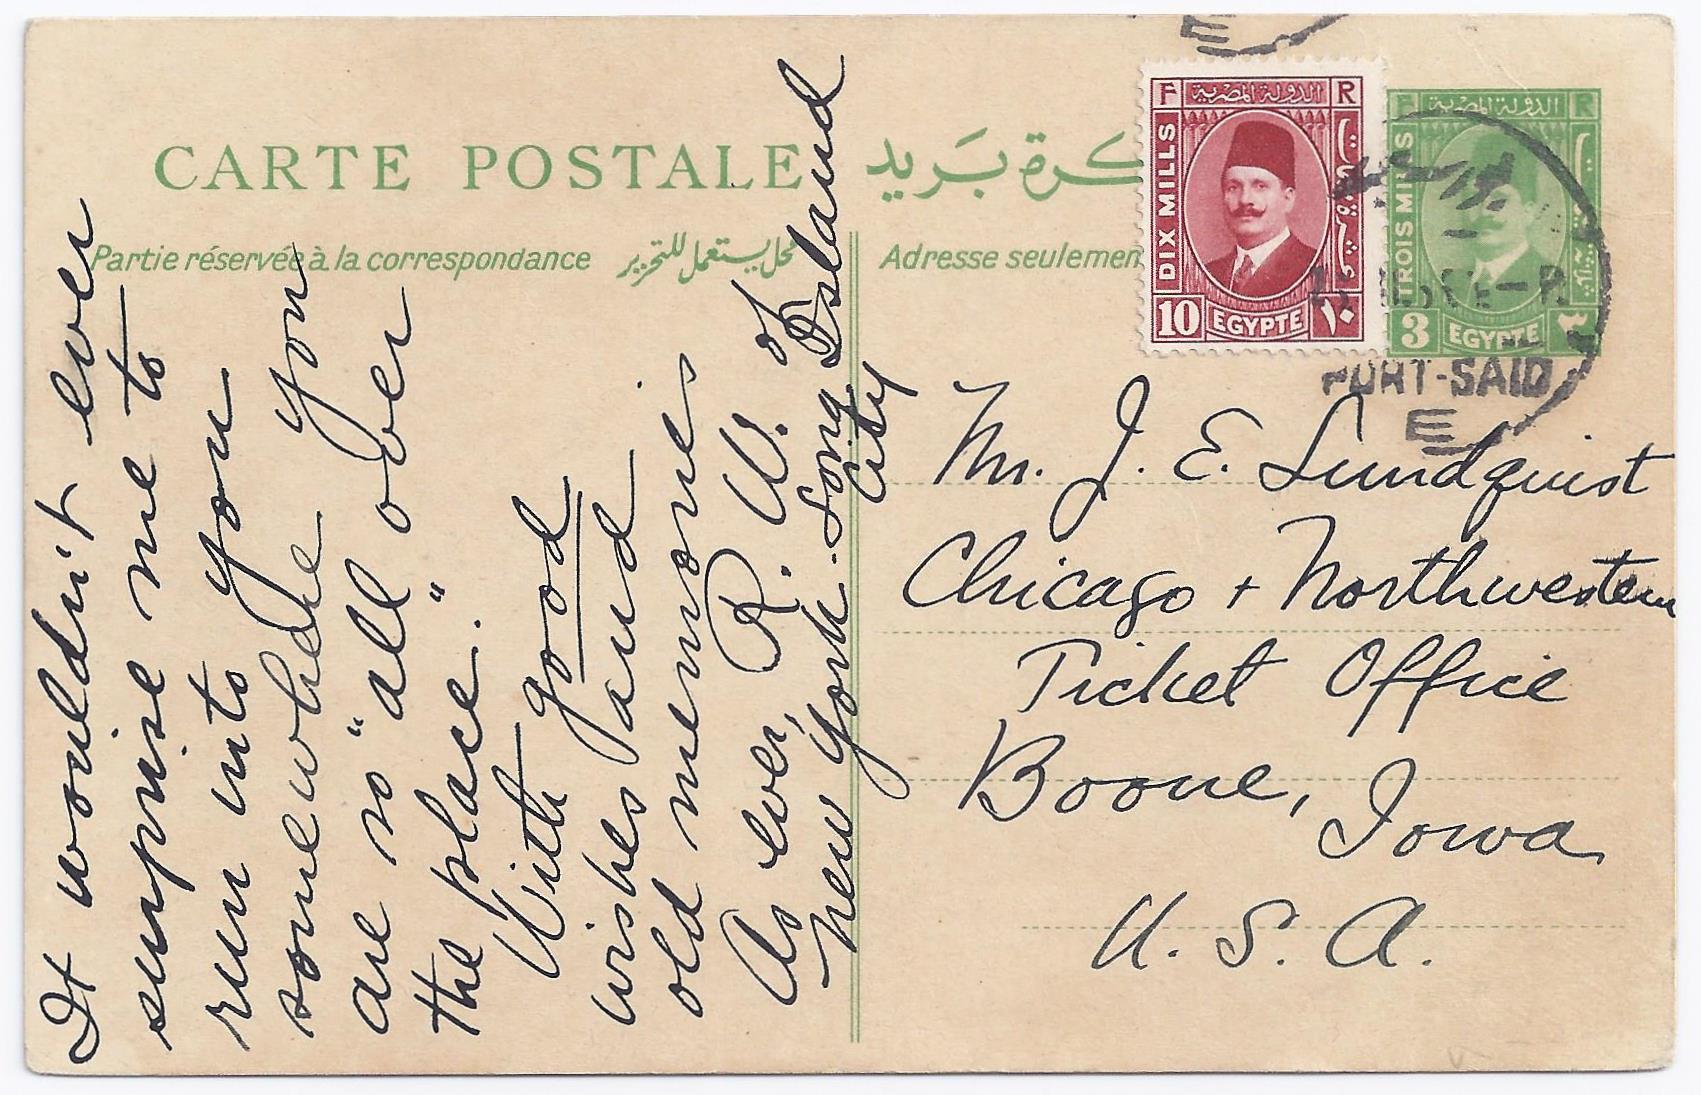 CARTE POSTALE
كرة بريد
Partie réservée à la correspondance
محل يستعمل للتحرير
Adresse seulemen
It wouldn't ever
surprise me to
run into you
somewhere You
are so "all over
the place."
With good
wishes and
old memories
As ever, R. W. of
New York. Long Island
City
F R
الدولة المصرية
DIX MILLS
10 EGYPTE ١٠
F R
الدولة المصرية
TROIS MILLS
3 EGYPTE ٣
E
PORT-SAID
E
Mr. J. E. Lundquist
Chicago + Northwestern
Ticket Office
Boone, Iowa
U. S. A.